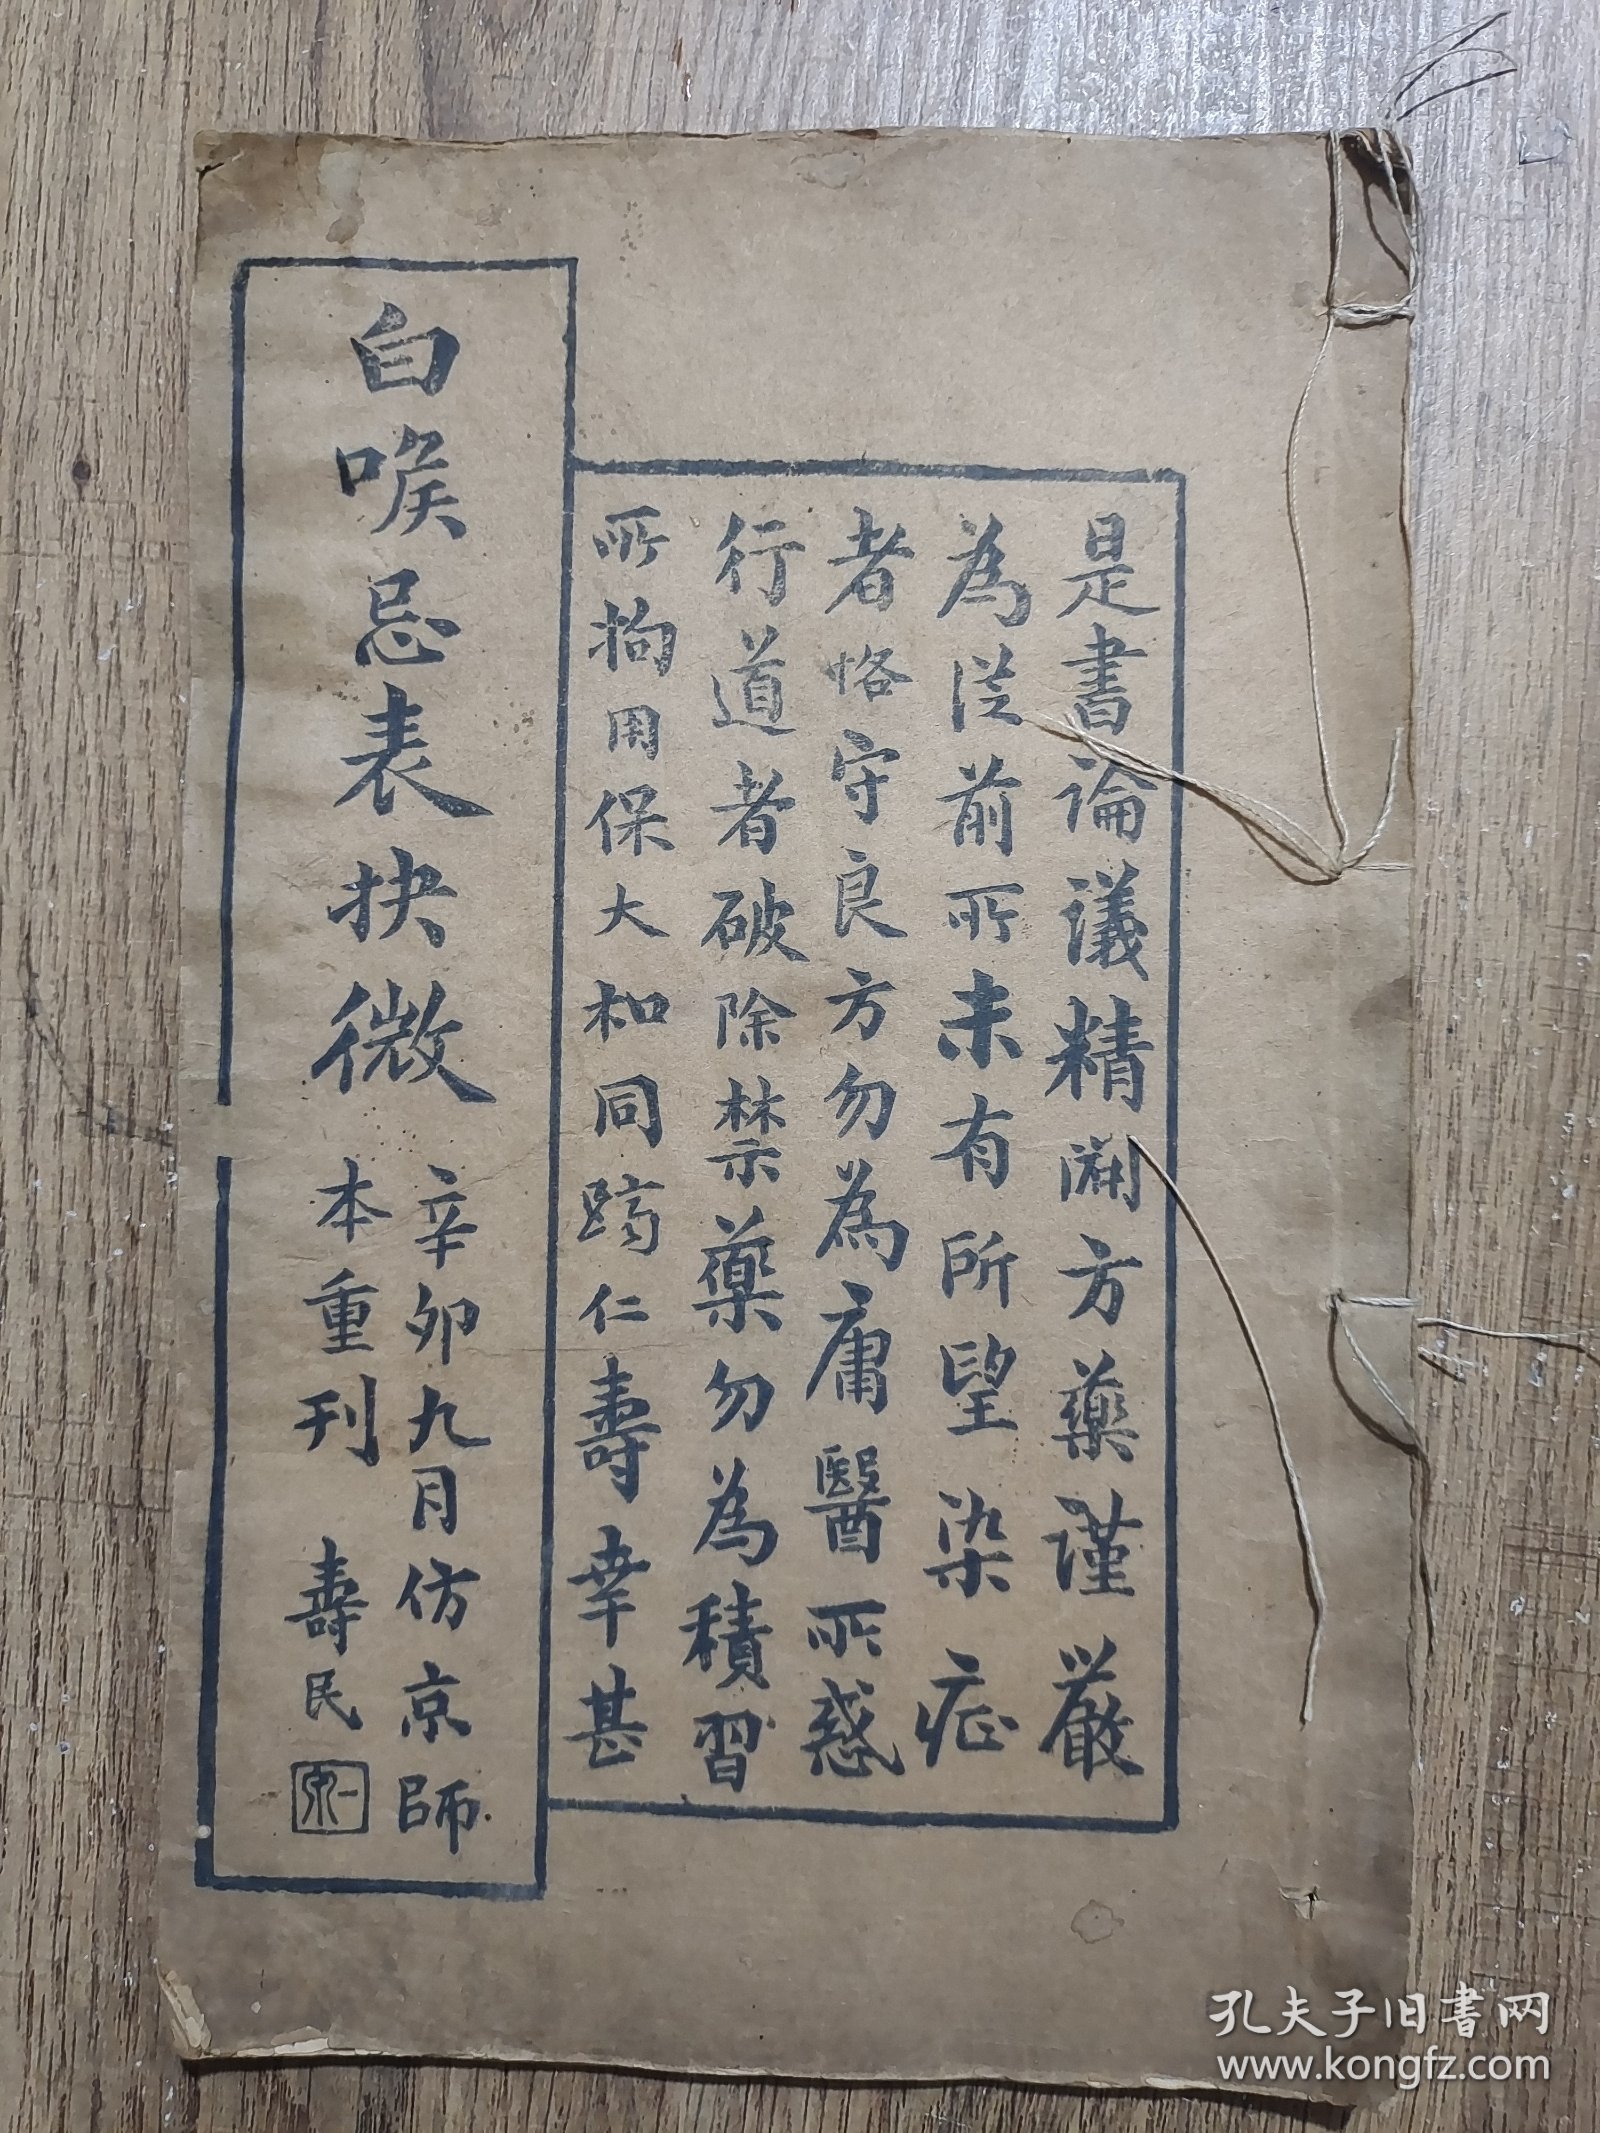 是書論議精淵方藥謹嚴
為從前所未有所望染症
者恪守良方勿為庸醫所惑
行道者破除禁藥勿為積習
所拘用保大和同躋仁壽幸甚
白喉忌表抉微
辛卯九月仿京師
本重刊 壽民
孔夫子旧書网
www.kongfz.com